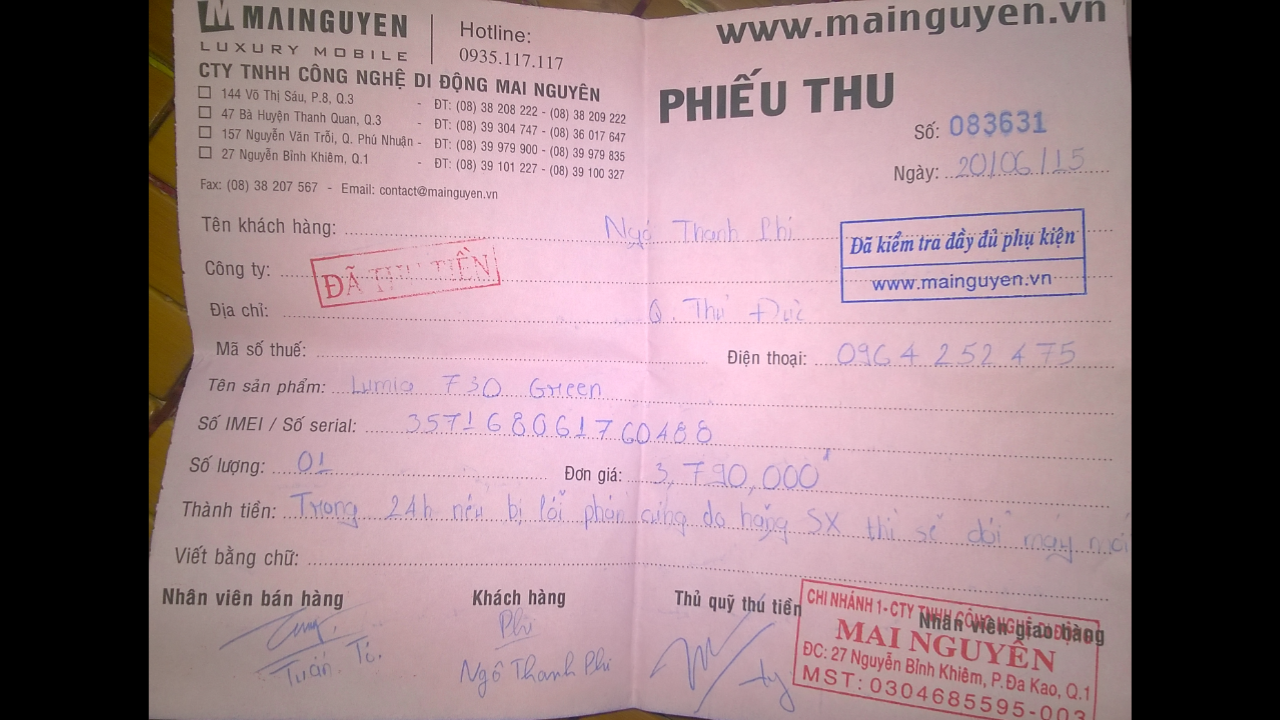 MAINGUYEN
LUXURY MOBILE
Hotline:
0935.117.117
www.mainguyen.vn
CTY TNHH CÔNG NGHỆ DI ĐỘNG MAI NGUYÊN
144 Võ Thị Sáu, P.8, Q.3 - ĐT: (08) 38 208 222 - (08) 38 209 222
47 Bà Huyện Thanh Quan, Q.3 - ĐT: (08) 39 304 747 - (08) 36 017 647
157 Nguyễn Văn Trỗi, Q. Phú Nhuận - ĐT: (08) 39 979 900 - (08) 39 979 835
27 Nguyễn Bỉnh Khiêm, Q.1 - ĐT: (08) 39 101 227 - (08) 39 100 327
Fax: (08) 38 207 567 - Email: contact@mainguyen.vn
PHIẾU THU
Số: 083631
Ngày: 20/06/15
Tên khách hàng: Ngô Thanh Phi
Đã kiểm tra đầy đủ phụ kiện
www.mainguyen.vn
Công ty:
ĐÃ THU TIỀN
Địa chỉ: Q. Thủ Đức
Mã số thuế: Điện thoại: 0964 252 475
Tên sản phẩm: Lumia 730 Green
Số IMEI / Số serial: 357168061760488
Số lượng: 01 Đơn giá: 3,790,000đ
Thành tiền: Trong 24h nếu bị lỗi phần cứng do hãng SX thì sẽ đổi máy mới
Viết bằng chữ:
Nhân viên bán hàng Khách hàng Thủ quỹ thu tiền Nhân viên giao hàng
Phi
Ngô Thanh Phi
CHI NHÁNH 1-CTY TNHH CÔNG NGHỆ DI ĐỘNG
MAI NGUYÊN
ĐC: 27 Nguyễn Bỉnh Khiêm, P.Đa Kao, Q.1
MST: 0304685595-003